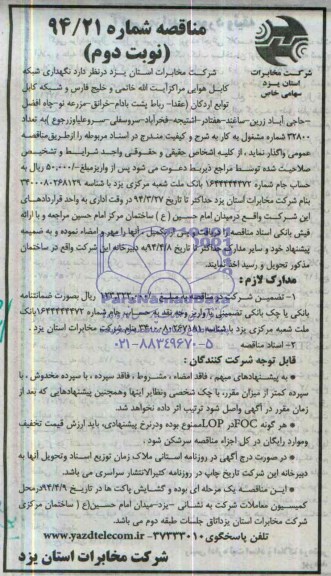 مناقصه شماره ۹۴/۲۱
(نوبت دوم)
شرکت مخابرات
استان یزد
سهامی خاص
شرکت مخابرات استان یزد درنظر دارد نگهداری شبکه
کابل هوایی مراکز آیت الله خاتمی و خلیج فارس و شبکه کابل
توابع اردکان (عقدا- رباط پشت بادام-خرانق-مزرعه نو-چاه افضل
-حاجی آباد زرین-ساغند-هفتادر-اشتیجه-فخرآباد-سروسفلی-سروعلیاوزرجوع )به تعداد
۳۲۸۰۰ شماره مشغول به کار به شرح و کیفیت مندرج در اسناد مربوطه را از طریق مناقصه
عمومی واگذار نماید ، از کلیه اشخاص حقیقی و حقوقی واجد شرایط و تشخیص
صلاحیت شده توسط مراجع ذیربط دعوت می شود پس از واریز مبلغ ۵۰،۰۰۰/- ریال به
حساب جام شماره ۱۶۴۴۴۴۴۴۷۲ بانک ملت شعبه مرکزی یزد با شناسه ۳۴۰۰۰۸۰۲۶۸۱۲۹
بنام شرکت مخابرات استان یزد حداکثر تا تاریخ ۹۴/۳/۲۷ در وقت اداری به واحد قراردادهای
این شرکت واقع درمیدان امام حسین (ع ) ساختمان مرکز امام حسین مراجعه و با ارائه
فیش بانکی اسناد مناقصه را دریافت و پس از تکمیل ، آنها را مهر و امضاء نموده و به ضمیمه
پیشنهاد خود و سایر مدارک حداکثر تا تاریخ ۹۴/۴/۸ به دبیرخانه این شرکت واقع در ساختمان
مذکور تحویل و رسید اخذ نمایند.
مدارک لازم :
۱- تضمین شرکت در مناقصه به مبلغ ریال بصورت ضمانتنامه
بانکی یا چک بانکی تضمینی یا واریز وجه نقد به حساب جام شماره ۱۶۴۴۴۴۴۴۷۲ بانک
ملت شعبه مرکزی یزد با شناسه بنام شرکت مخابرات استان یزد .
۲- اسناد مناقصه
۰۲۱-۸۸۳۴۹۶۷۰-۵
قابل توجه شرکت کنندگان :
● به پیشنهادهای مبهم ، فاقد امضاء ، مشروط ، فاقد سپرده ، با سپرده مخدوش ، با
سپرده کمتر از میزان مقرر، با چک شخصی ونظایر اینها وهمچنین پیشنهادهایی که بعد از
زمان مقرر در آگهی واصل شود ترتیب اثر داده نخواهد شد.
● هر گونه FOCدر LOPممنوع بوده ودرنرخ پیشنهادی، باید ارزش قیمت تخفیف
وموارد رایگان در کل اجزاء مناقصه سرشکن شود .
● در صورت درج آگهی در روزنامه استانی ملاک زمان توزیع اسناد وتحویل آنها به
دبیرخانه این شرکت تاریخ چاپ در روزنامه کثیرالانتشار سراسری می باشد.
● این مناقصه یک مرحله ای بوده و گشایش پاکت ها در تاریخ ۹۴/۴/۹درمحل
کمیسیون معاملات شرکت به نشانی -یزد-میدان امام حسین(ع) ساختمان مرکزی
شرکت مخابرات استان یزداتاق جلسات طبقه دوم می باشد.
تلفن پاسخگویی ۳۷۲۳۳۰۱۰- www.yazdtelecom.ir
شرکت مخابرات استان یزد